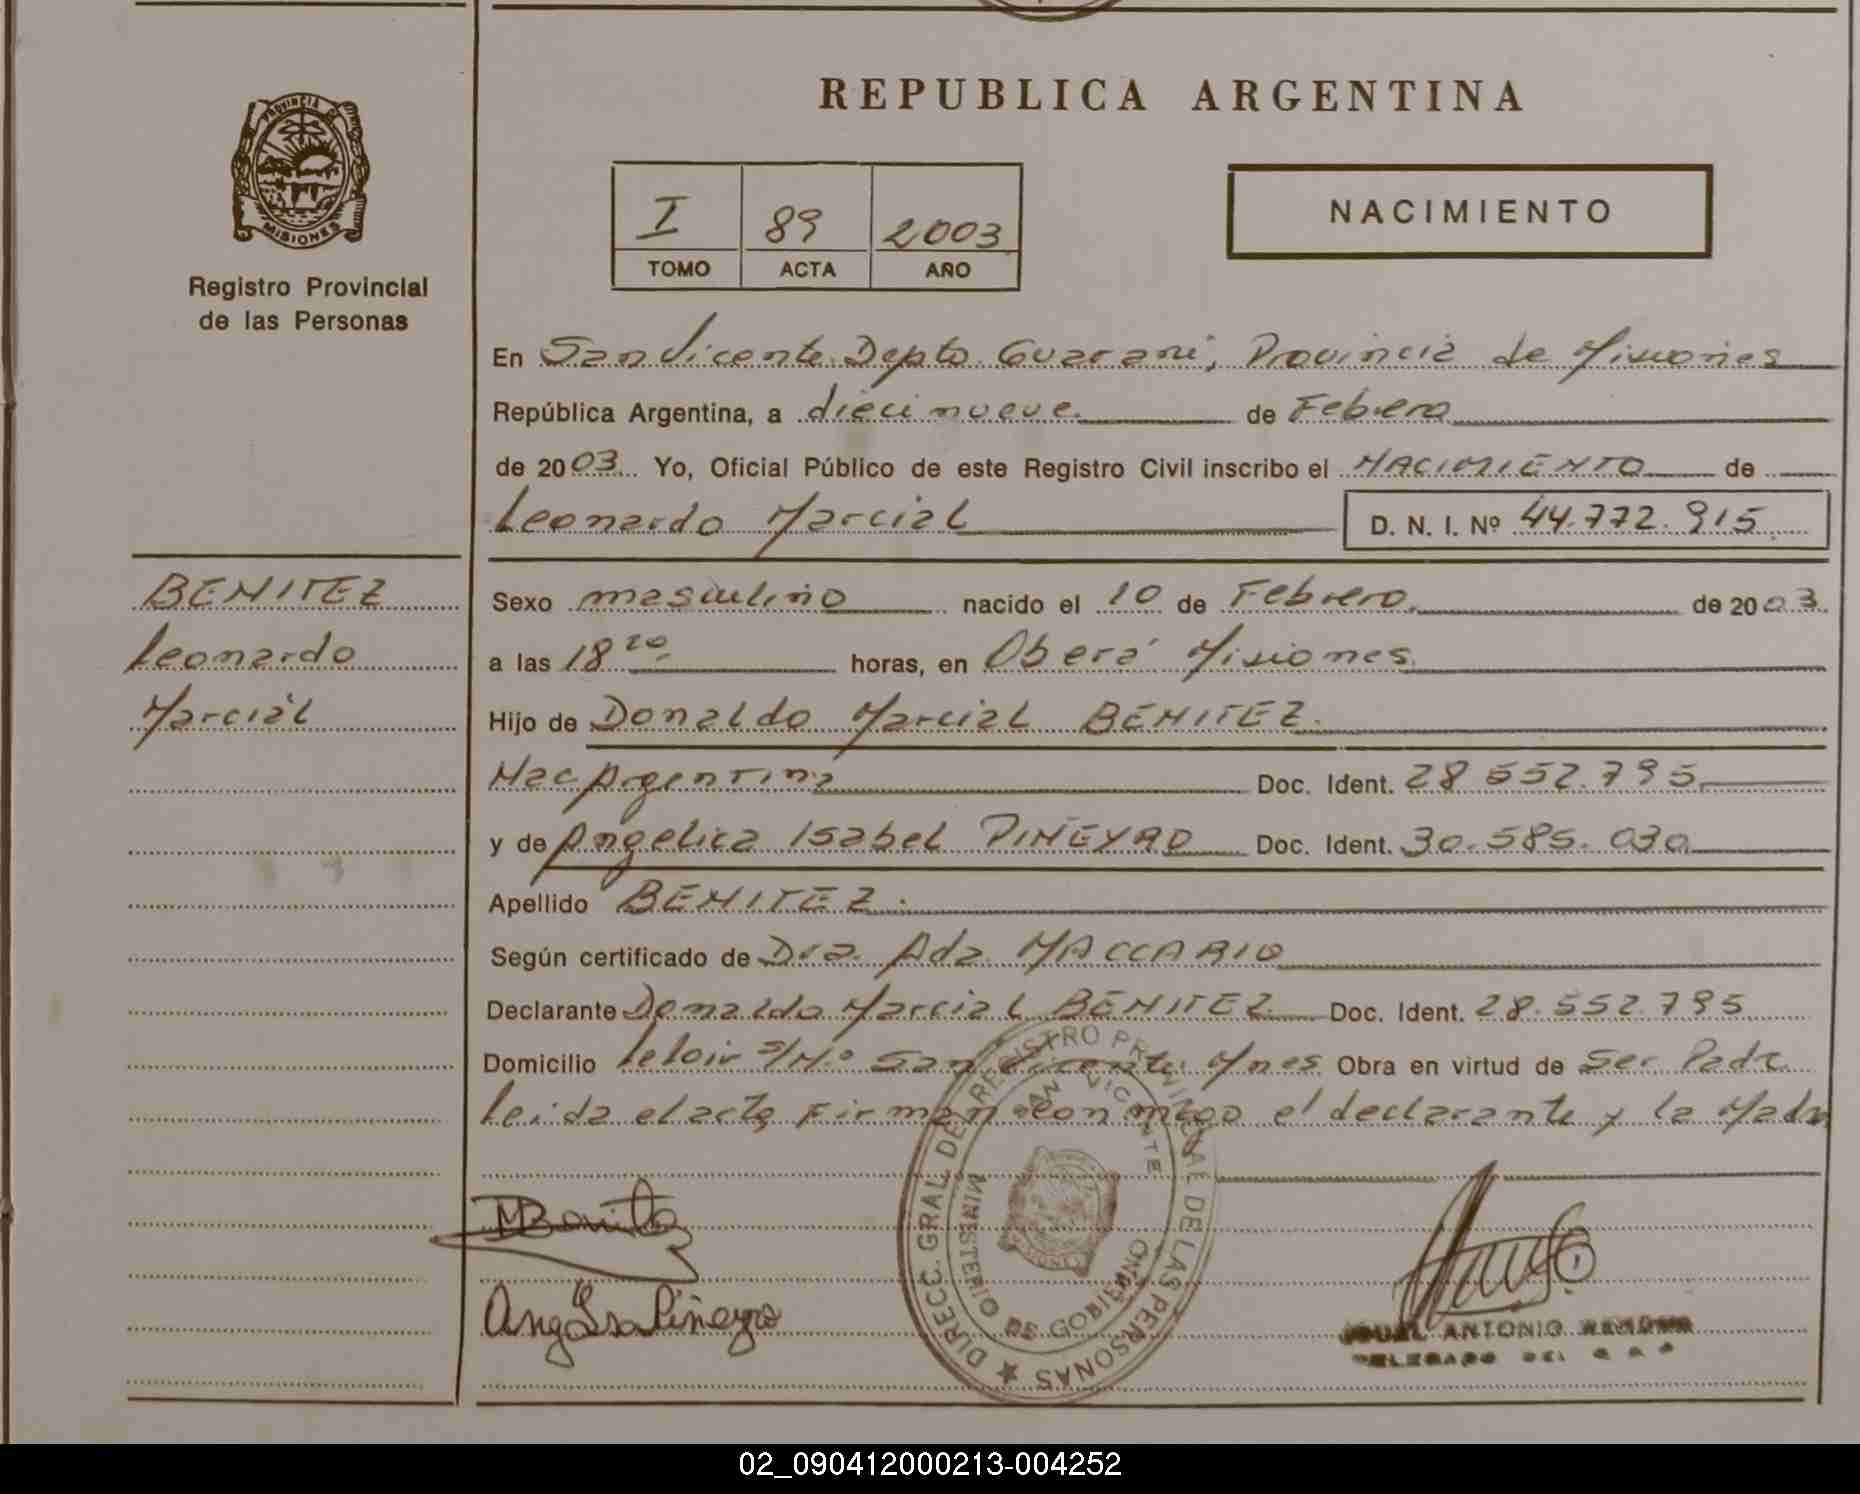 REPUBLICA ARGENTINA
PROVINCIA DE
MISIONES
Registro Provincial
de las Personas
I 89 2003
TOMO ACTA AÑO
NACIMIENTO
En San Vicente Depto Guaraní, Provincia de Misiones
República Argentina, a diecinueve de Febrero
de 2003 Yo, Oficial Público de este Registro Civil inscribo el NACIMIENTO de
Leonardo Marcial D. N. I. Nº 44.772.915
BENITEZ
Leonardo
Marcial
Sexo masculino nacido el 10 de Febrero de 2003
a las 18 20 horas, en Oberá Misiones
Hijo de Donaldo Marcial BENITEZ
Nac Argentina Doc. Ident. 28.552.795
y de Angelica Isabel PIÑEYRO Doc. Ident. 30.585.030
Apellido BENITEZ.
Según certificado de Dra. Ada MACCARIO
Declarante Donaldo Marcial BENITEZ Doc. Ident. 28.552.795
Domicilio Leloir S/Nº San Vicente Mnes Obra en virtud de Ser Padre
Leida el acta Firman conmigo el declarante y la Madre
DIRECC. GRAL. DE REGISTRO PROVINCIAL DE LAS PERSONAS
SAN VICENTE
MINISTERIO DE GOBIERNO
MBenitez
Ang Isa Piñeyro
ANTONIO
DELEGADO DEL
02_090412000213-004252